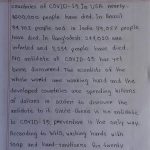 countries of COVID-19. In USA nearly
people have died. In Brazil
people have died and in India
people have died. In Bangladesh
are infected and 5,251 people have died.
No antidote of COVID-19 has yet
been discovered. The scientists of the
whole world are working hard and the
developed countries are spending billions
of dollars in order to discover the
antidote to it. Since there is no antidote
to COVID-19, prevention is the only way.
According to WHO, washing hands with
soap and hand sanitizer for twenty